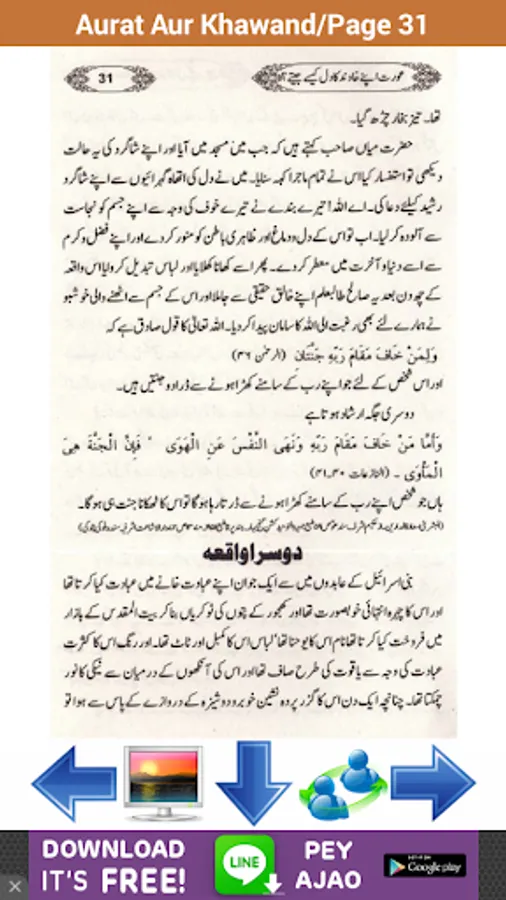 Aurat Aur Khawand/Page 31
31
عورت اپنے خاوند کا دل کیسے جیتے؟
تھا۔ تیز بخار چڑھ گیا۔
حضرت میاں صاحب کہتے ہیں کہ جب میں مسجد میں آیا اور اپنے شاگرد کی یہ حالت
دیکھی تو استفسار کیا اس نے تمام ماجرا کہہ سنایا۔ میں نے دل کی اتھاہ گہرائیوں سے اپنے شاگرد
رشید کیلئے دعا کی۔ اے اللہ! تیرے بندے نے تیرے خوف کی وجہ سے اپنے جسم کو نجاست
سے آلودہ کر لیا۔ اب تو اس کے دل و دماغ اور ظاہری باطن کو منور کر دے اور اپنے فضل و کرم
سے اسے دنیا و آخرت میں معطر کر دے۔ پھر اسے کھانا کھلایا اور لباس تبدیل کروایا اس واقعہ
کے چھ دن بعد یہ صالح طالبعلم اپنے خالق حقیقی سے جاملا اور اس کے جسم سے اٹھنے والی خوشبو
نے ہمارے لئے بھی رغبت الی اللہ کا سامان پیدا کر دیا۔ اللہ تعالیٰ کا قول صادق ہے کہ
وَلِمَنْ خَافَ مَقَامَ رَبِّهِ جَنَّتَان (الرحمٰن ۴۶)
اور اس شخص کے لئے جو اپنے رب کے سامنے کھڑا ہونے سے ڈرا دو جنتیں ہیں۔
دوسری جگہ ارشاد ہوتا ہے
وَأَمَّا مَنْ خَافَ مَقَامَ رَبِّهِ وَنَهَى النَّفْسَ عَنِ الْهَوَى ۔ فَإِنَّ الْجَنَّةَ هِيَ
الْمَأْوَى ۔ (النازعات ۴۱،۴۰)
ہاں جو شخص اپنے رب کے سامنے کھڑا ہونے سے ڈرتا رہا ہوگا تو اس کا ٹھکانا جنت ہی ہوگا۔
دوسرا واقعہ
بنی اسرائیل کے عابدوں میں سے ایک جوان اپنے عبادت خانے میں عبادت کیا کرتا تھا
اور اس کا چہرہ انتہائی خوبصورت تھا اور کھجور کے پتوں کی ٹوکریاں بنا کر بیت المقدس کے بازار
میں فروخت کیا کرتا تھا نام اس کا یوحنا تھا' لباس اس کا کمبل اور ناٹ تھا۔ اور رنگ اس کا کثرت
عبادت کی وجہ سے یاقوت کی طرح صاف تھا اور اس کی آنکھوں کے درمیان سے نیکی کا نور
چمکتا تھا۔ چنانچہ ایک دن اس کا گزر پردہ نشین خوبرو دوشیزہ کے دروازے کے پاس سے ہوا تو
DOWNLOAD
IT'S FREE!
LINE
PEY
AJAO
GET IT ON
Google play